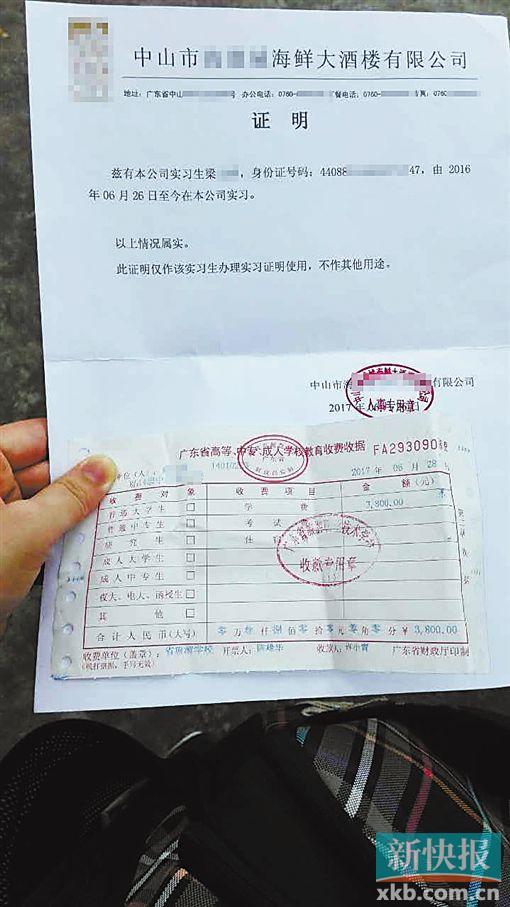 中山市 海鲜大酒楼有限公司
地址：广东省中山 号 办公电话：0760- 餐电话：0760- 传真：0760
证 明
兹有本公司实习生梁 ，身份证号码：44088 47，由 2016
年 06 月 26 日至今在本公司实习。
以上情况属实。
此证明仅作该实习生办理实习证明使用，不作其他用途。
中山市海 有限公司
人事专用章
2017 年 0
广东省高等、中专、成人学校教育收费收据 FA293090
2017 年 06 月 28
收 费 对 象 收 费 项 目 金 额（元）
普通大学生 学 费 3,800.00
普通中专生 考 试
研 究 生 住
成人大学生
收款专用章
成人中专生
夜大、电大、函授生
其 他
合计人民币（大写） 零 万 仟 捌 佰 零 拾 零 元 零 角 零 分 ￥ 3,800.00
收费单位（盖章）： 学校 开票人： 收款人： 广东省财政厅印制
新快报
xkb.com.cn